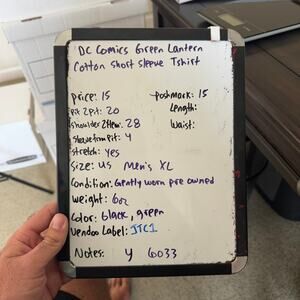 DC Comics Green Lantern
Cotton Short Sleeve Tshirt
price: 15
poshmark: 15
Pit 2 pit: 20
Length:
Shoulder 2 Hem: 28
Waist:
Sleeve from Pit: 4
stretch: yes
Size: US Men's XL
Condition: Gently worn pre owned
Weight: 6oz
Color: black, green
Vendoo Label: JTC1
Notes: y 6033